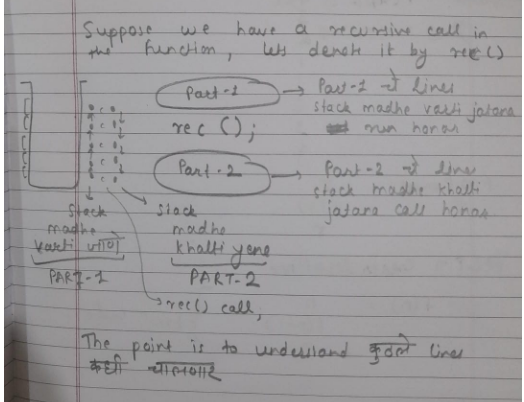 Suppose we have a recursive call in
the function, lets denote it by rec()
Part-1 → Part-1 चे lines
stack madhe varti jatana
run honar
rec ();
Part-2 → Part-2 चे line
stack madhe khalti
jatana call honar
stack
madhe
varti जाणे
PART-1
stack
madhe
khalti yene
PART-2
→ rec() call,
The point is to understand कुठले lines
कधी चालणार